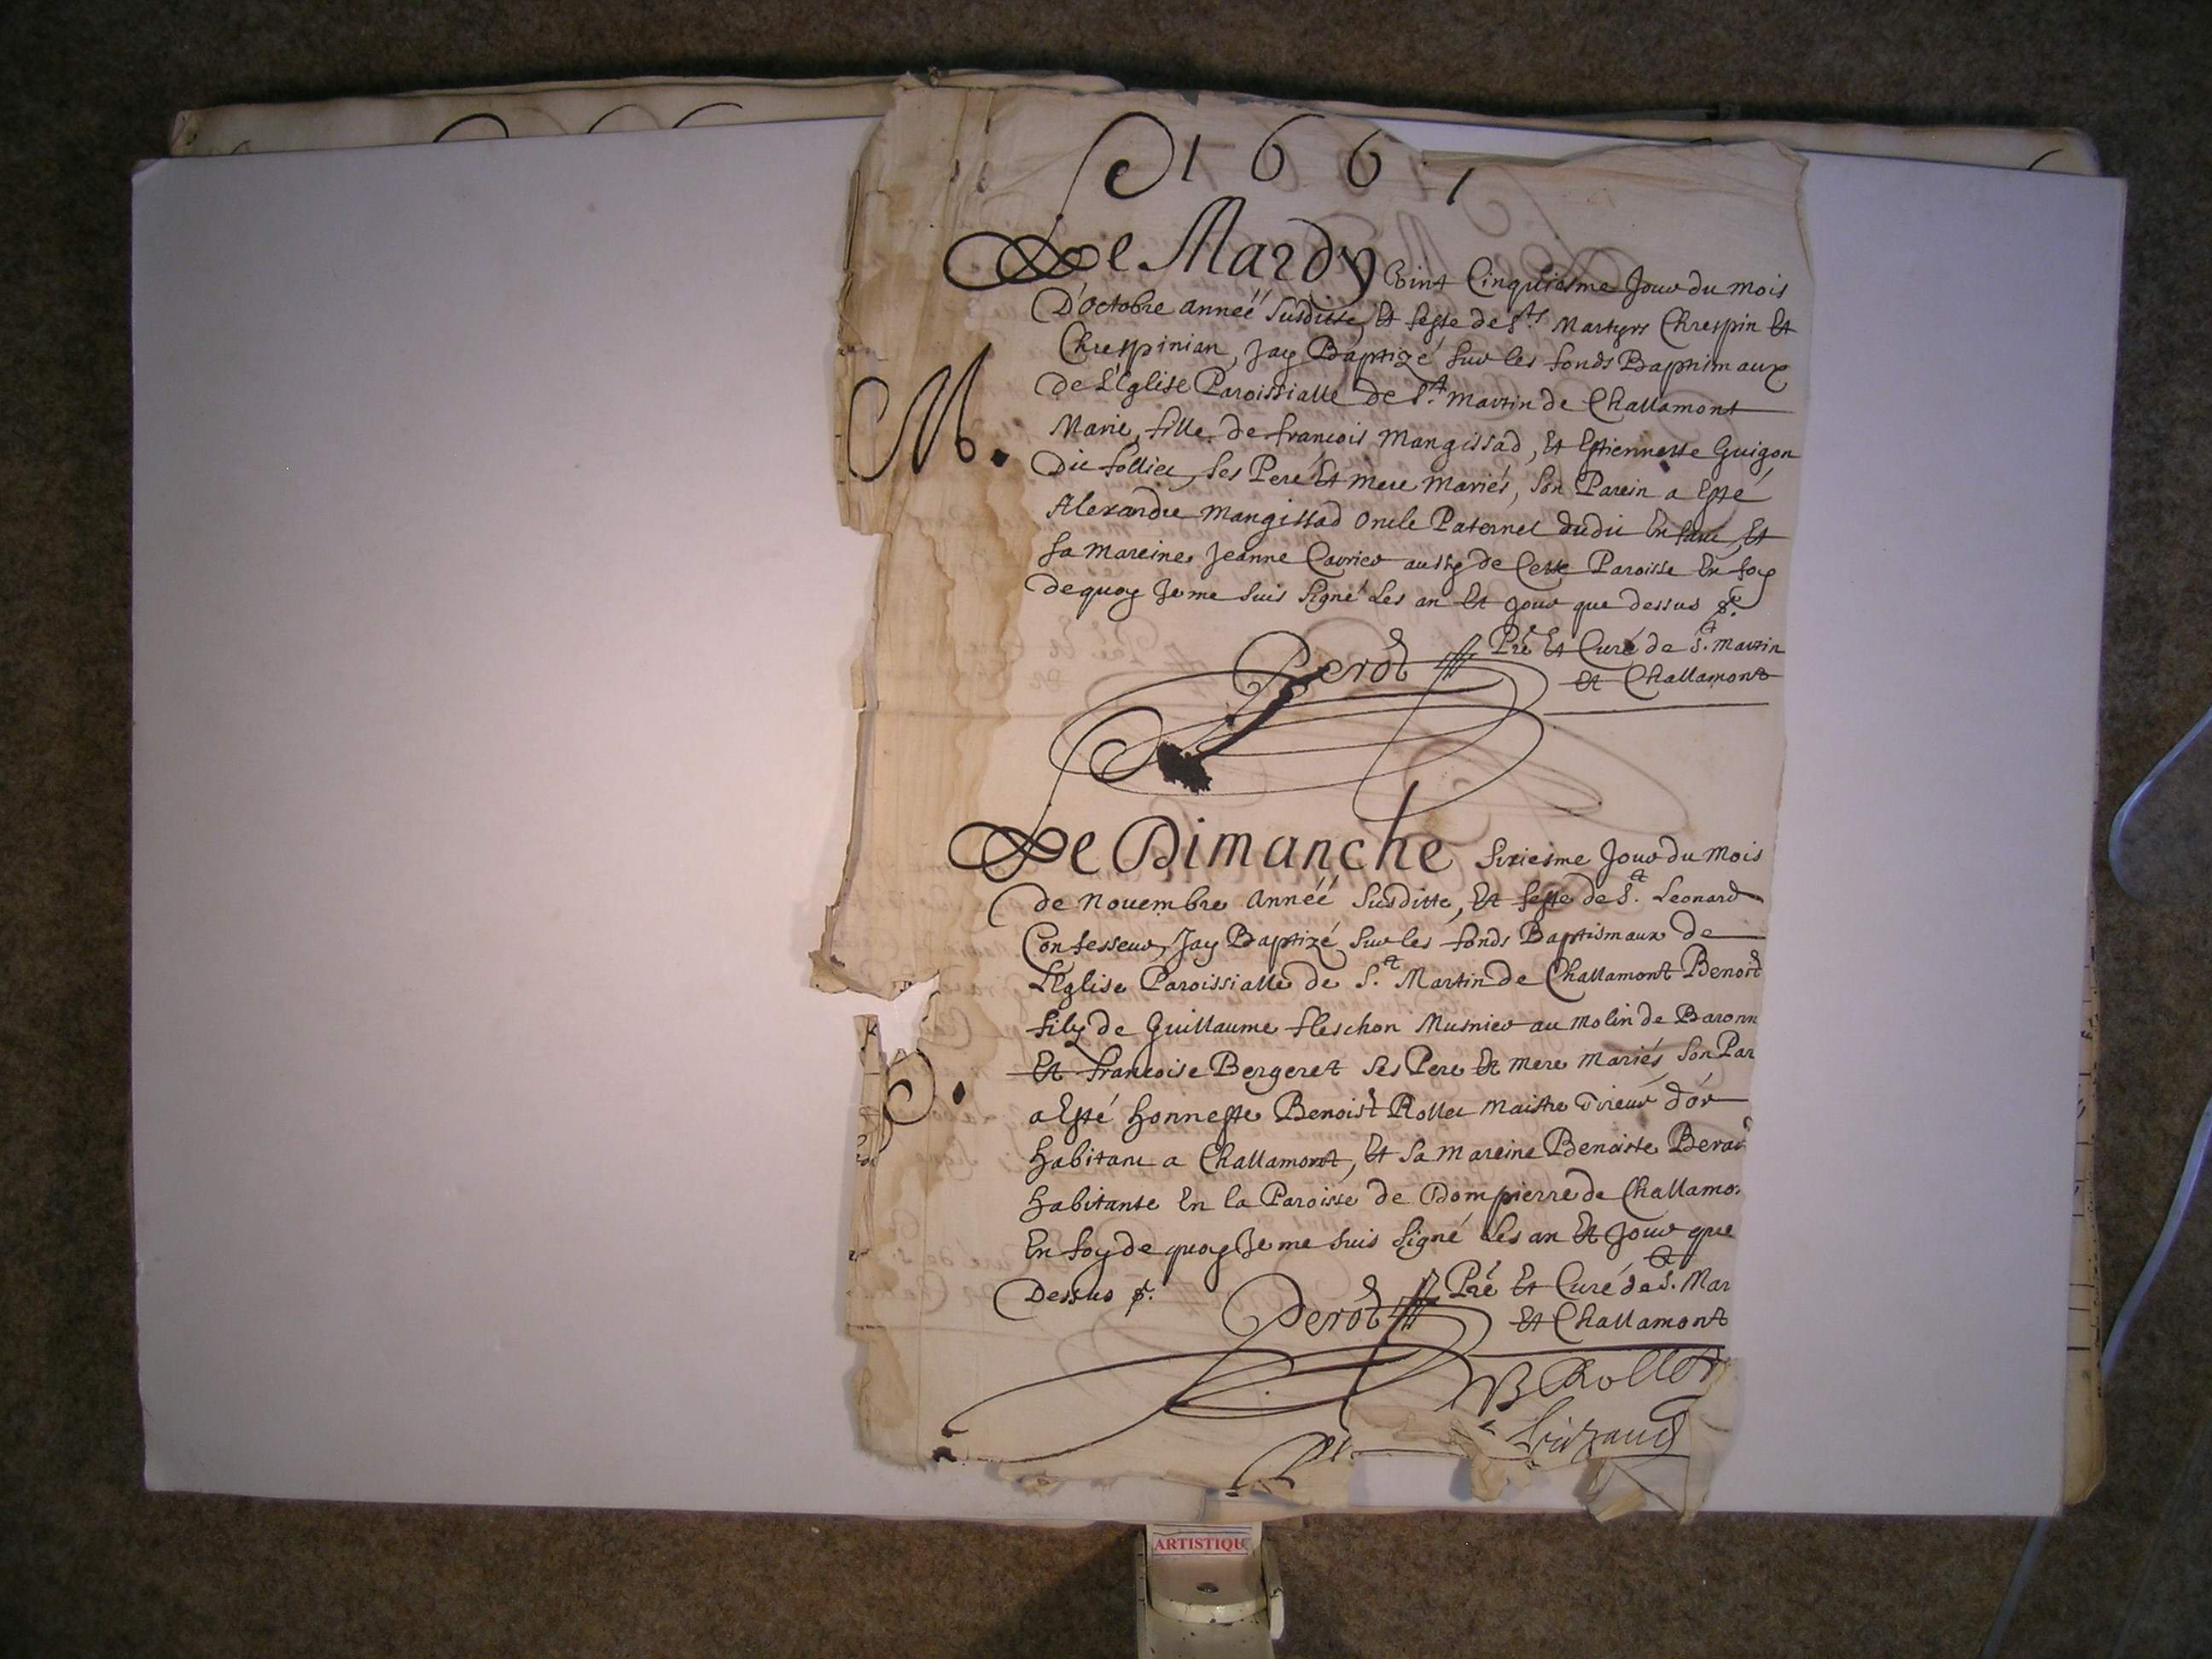 1667
Le Mardy Vint Cinquiesme Jour du mois
D'Octobre année susditte, Et feste des Sts Martyrs Chrespin Et
Chrespinian, Jay Baptizé sur les fonds Baptismaux
de L'Eglise Paroissialle de St. Martin de Challamont
M.
Marie, fille de francois Mangissad, Et Estiennette Guigon
Dit follier, ses Pere Et mere mariés, son Parein a Esté
Alexandre Mangissad Oncle Paternel dudit Enfant, Et
sa mareine Jeanne Cavrier aussy de Cette Paroisse En foy
dequoy Je me suis signé Les an Et Jour que dessus &c.
Perot Pre Et Curé de St. Martin
Et Challamont
Le Dimanche sixiesme Jour du mois
de Nouembre année susditte, Et feste de St. Leonard
Confesseur, Jay Baptizé sur les fonds Baptismaux de
L'Eglise Paroissialle de St. Martin de Challamont Benoist
filz de Guillaume fleschon Musnier au molin de Baronn
Et francoise Bergeret ses Pere Et mere mariés, son Par
B.
a Esté honneste Benoist Rollet Maistre Tireur d'or
habitant a Challamont, Et sa mareine Benoiste
habitante En la Paroisse de Dompierre de Challamo
En foy de quoy Je me suis signé Les an Et Jour que
Dessus &c.
Perot Pre Et Curé de St. Mar
Et Challamont
B Rollet
ARTISTIQU